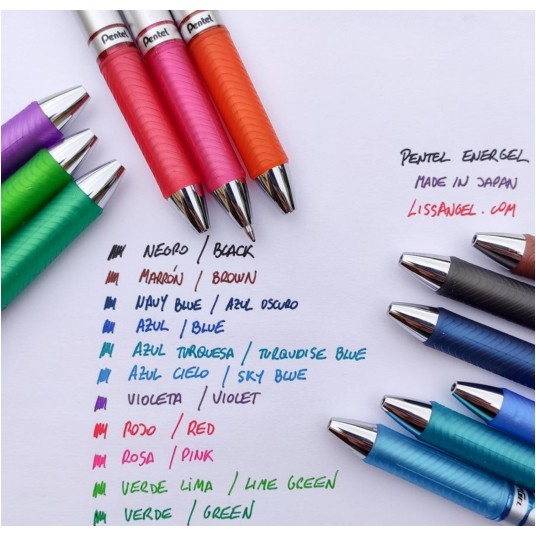 Pentel
Pentel
PENTEL ENERGEL
MADE IN JAPAN
LISSANGEL.COM
NEGRO / BLACK
MARRÓN / BROWN
NAVY BLUE / AZUL OSCURO
AZUL / BLUE
AZUL TURQUESA / TURQUOISE BLUE
AZUL CIELO / SKY BLUE
VIOLETA / VIOLET
ROJO / RED
ROSA / PINK
VERDE LIMA / LIME GREEN
VERDE / GREEN